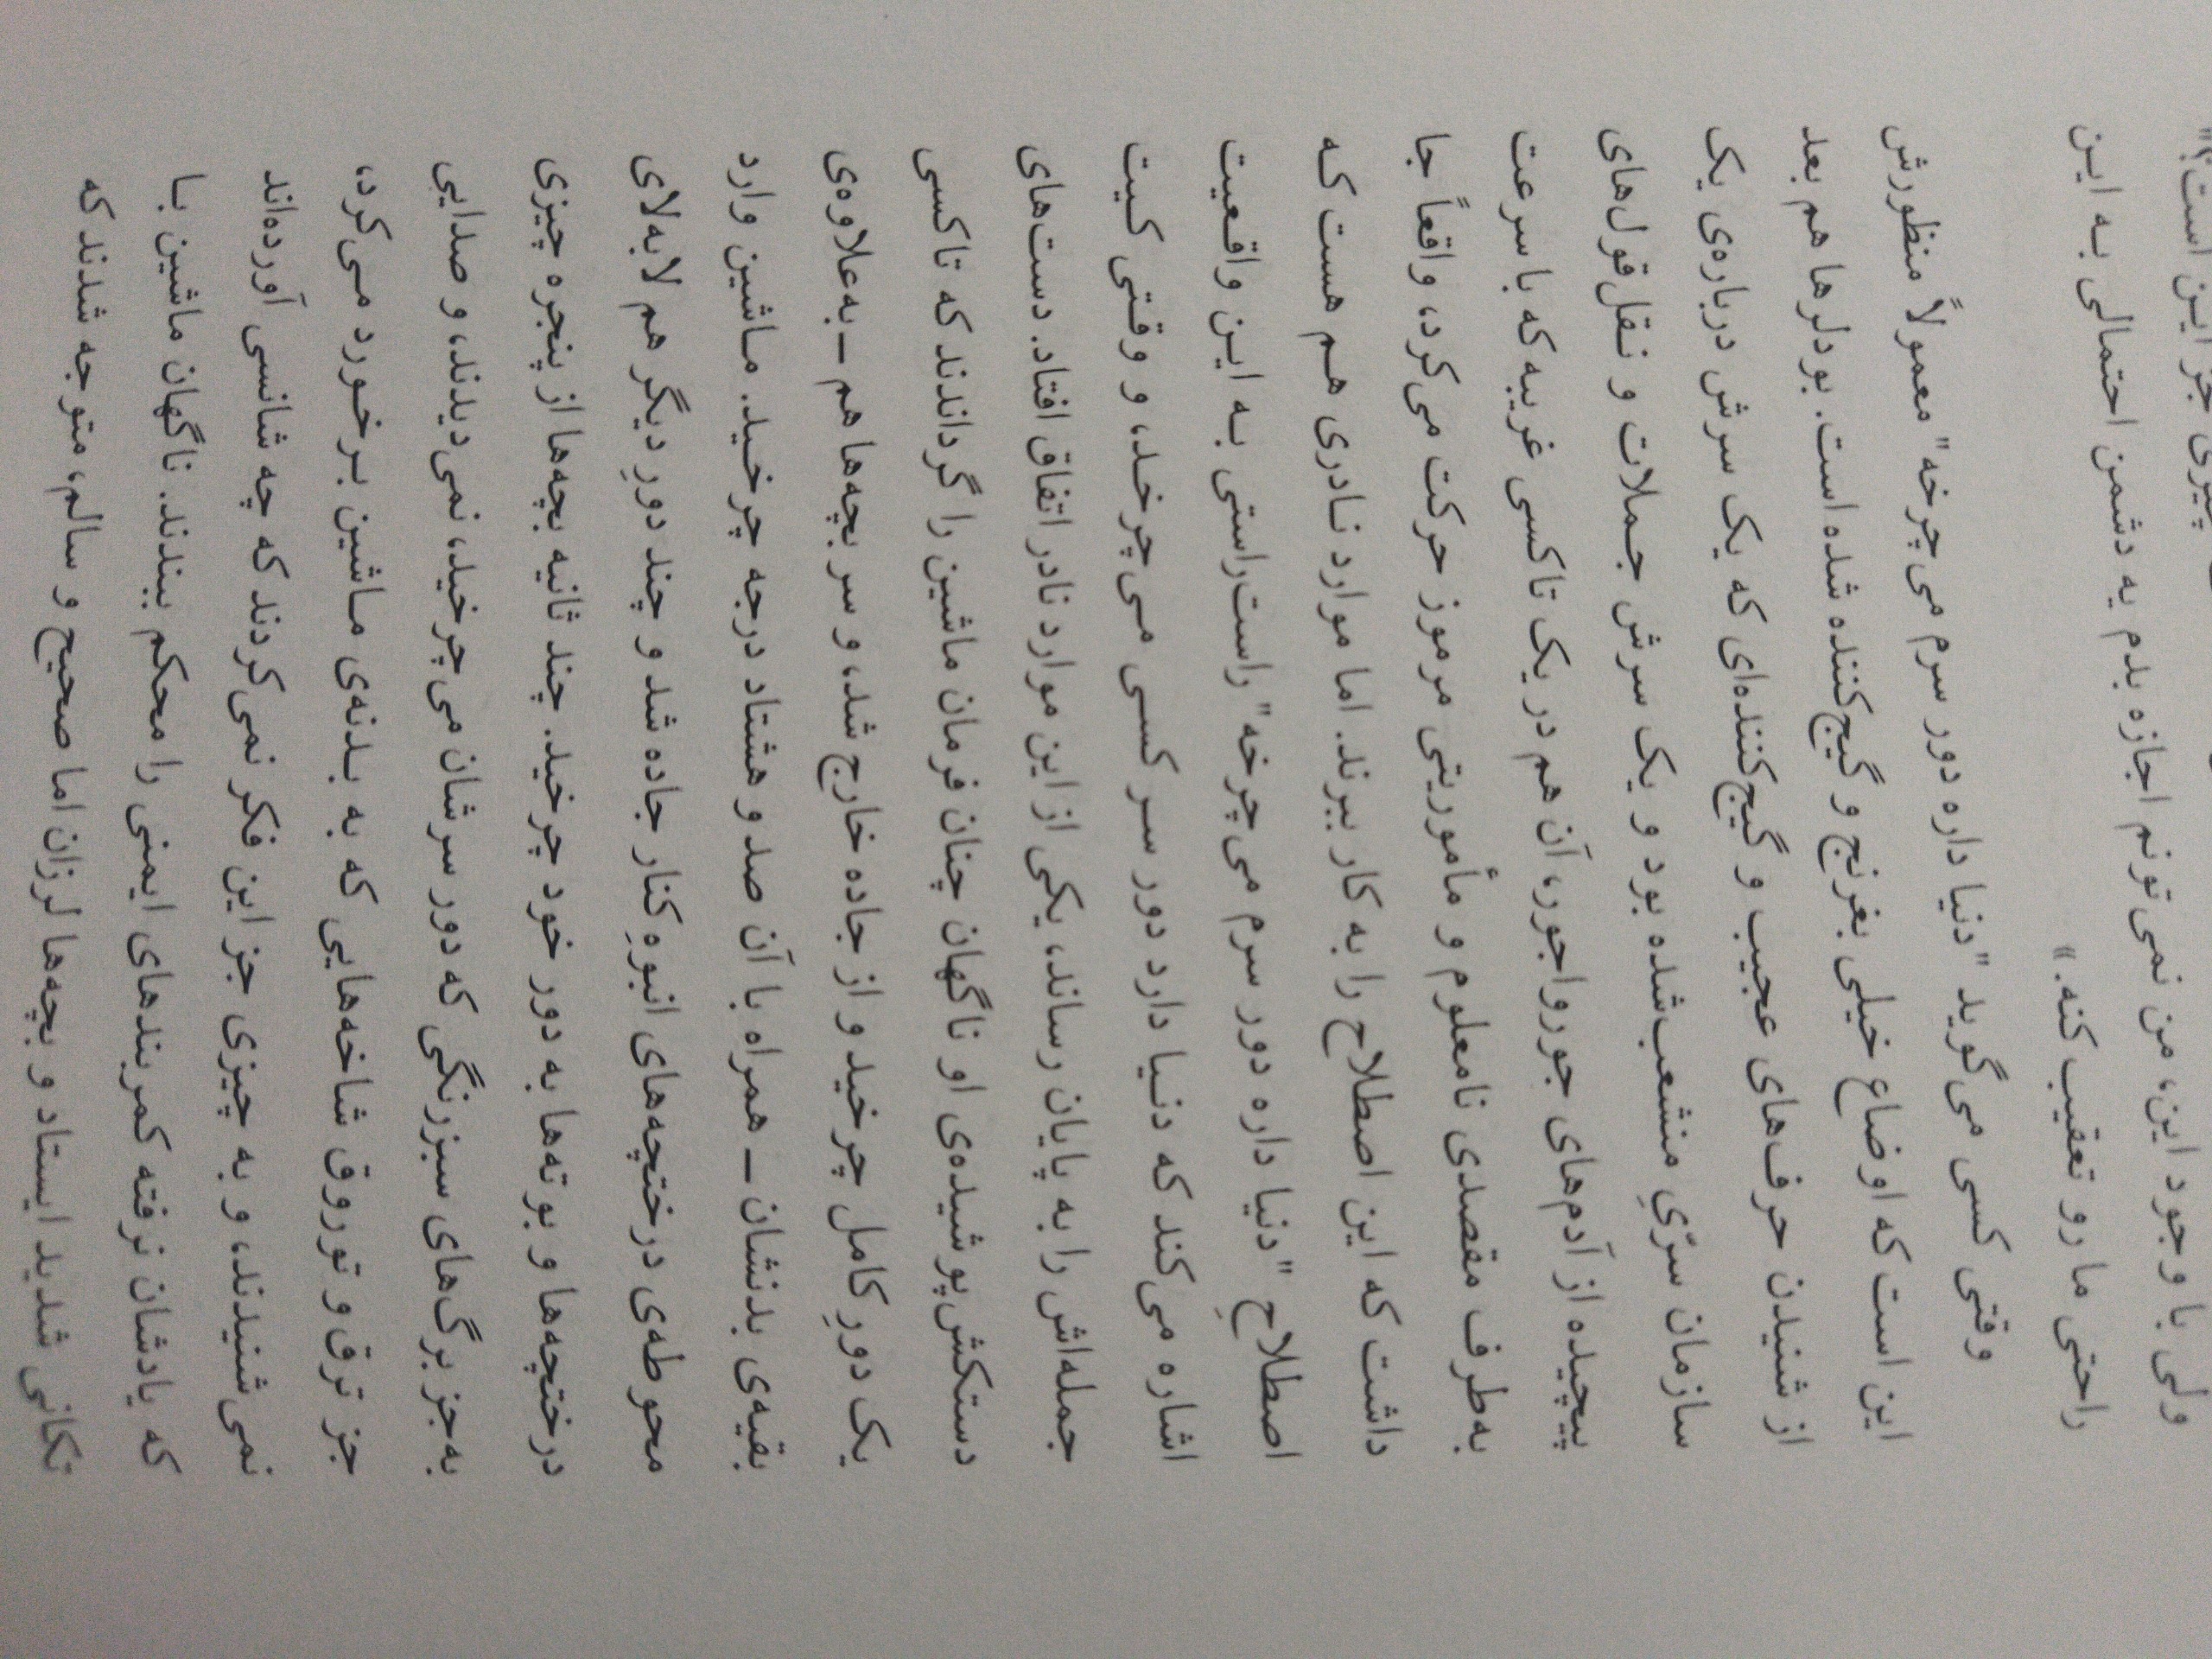 چیزی جز این است؟"
ولی با وجود این، من نمی‌تونم اجازه بدم یه دشمن احتمالی به این
راحتی ما رو تعقیب کنه."
وقتی کسی می‌گوید "دنیا داره دور سرم می‌چرخه" معمولاً منظورش
این است که اوضاع خیلی بغرنج و گیج‌کننده شده است. بودلرها هم بعد
از شنیدن حرف‌های عجیب و گیج‌کننده‌ای که یک سرش درباره‌ی یک
سازمان سرّیِ منشعب‌شده بود و یک سرش جملات و نقل‌قول‌های
پیچیده از آدم‌های جورواجور، آن هم در یک تاکسی غریبه که با سرعت
به‌طرف مقصدی نامعلوم و مأموریتی مرموز حرکت می‌کرد، واقعاً جا
داشت که این اصطلاح را به کار ببرند. اما موارد نادری هم هست که
اصطلاحِ "دنیا داره دور سرم می‌چرخه" راست‌راستی به این واقعیت
اشاره می‌کند که دنیا دارد دور سر کسی می‌چرخد، و وقتی کیت
جمله‌اش را به پایان رساند، یکی از این موارد نادر اتفاق افتاد. دست‌های
دستکش‌پوشیده‌ی او ناگهان چنان فرمان ماشین را گرداندند که تاکسی
یک دورِ کامل چرخید و از جاده خارج شد، و سر بچه‌ها هم ــ به‌علاوه‌ی
بقیه‌ی بدنشان ــ همراه با آن صد و هشتاد درجه چرخید. ماشین وارد
محوطه‌ی درختچه‌های انبوهِ کنار جاده شد و چند دورِ دیگر هم لابه‌لای
درختچه‌ها و بوته‌ها به دور خود چرخید. چند ثانیه بچه‌ها از پنجره چیزی
به‌جز برگ‌های سبزرنگی که دور سرشان می‌چرخید، نمی‌دیدند، و صدایی
جز ترق و توروق شاخه‌هایی که به بدنه‌ی ماشین برخورد می‌کرد،
نمی‌شنیدند، و به چیزی جز این فکر نمی‌کردند که چه شانسی آورده‌اند
که یادشان نرفته کمربندهای ایمنی را محکم ببندند. ناگهان ماشین با
تکانی شدید ایستاد و بچه‌ها لرزان اما صحیح و سالم، متوجه شدند که